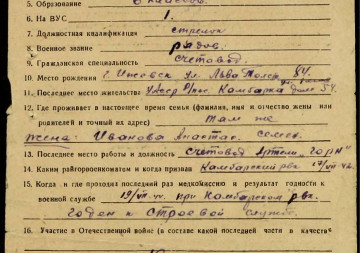 5. Образование 6 классов.
6. На ВУС 1.
7. Должностная квалификация стрелок
8. Военное звание рядов.
9. Гражданская специальность счетовод.
10. Место рождения г. Ижевск ул. Льва Толст. 84.
11. Последнее место жительства УАССР Камбарка дом 54.
12. Где проживает в настоящее время семья (фамилия, имя и отчество жены или
родителей и точный их адрес) там же
жена: Иванова Анастас. Семен.
13. Последнее место работы и должность счетовод Артели „Горн“
14. Каким райгорвоенкоматом и когда призван Камбарский рвк
15. Когда и где проходил последний раз медкомиссию и результат годности к
военной службе 19/VII при Камбарском рвк.
годен к строевой службе
16. Участие в Отечественной войне (в составе какой последней части в качестве